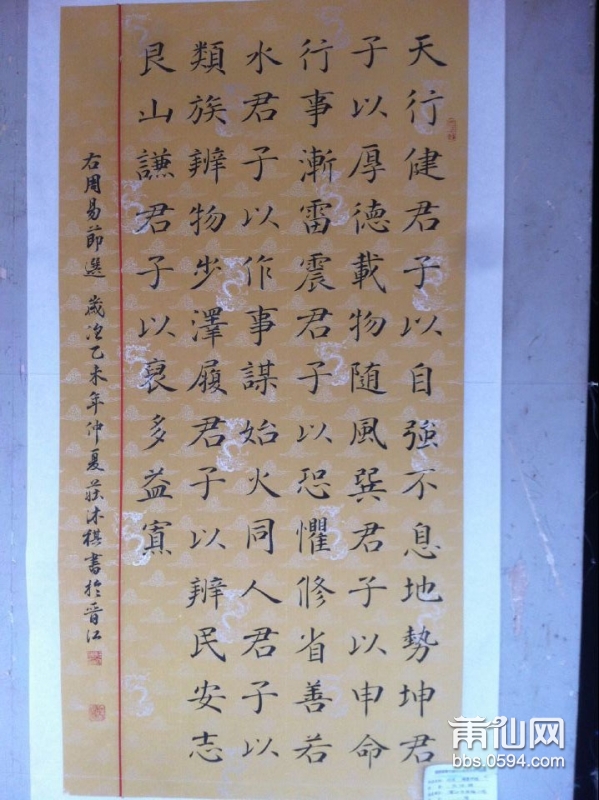 天行健君子以自強不息地勢坤君
子以厚德載物随風巽君子以申命
行事漸雷震君子以恐懼修省善若
水君子以作事謀始火同人君子以
類族辨物步澤履君子以辨民安志
艮山謙君子以裒多益寡
右周易節選 歲次乙未年仲夏莊沐棋書於晋江
莆仙网
bbs.0594.com